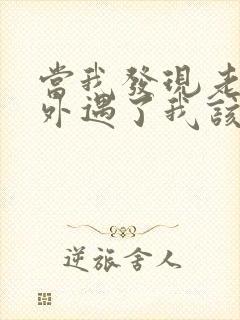 當我發現老
外遇了我該
逆旅舍人